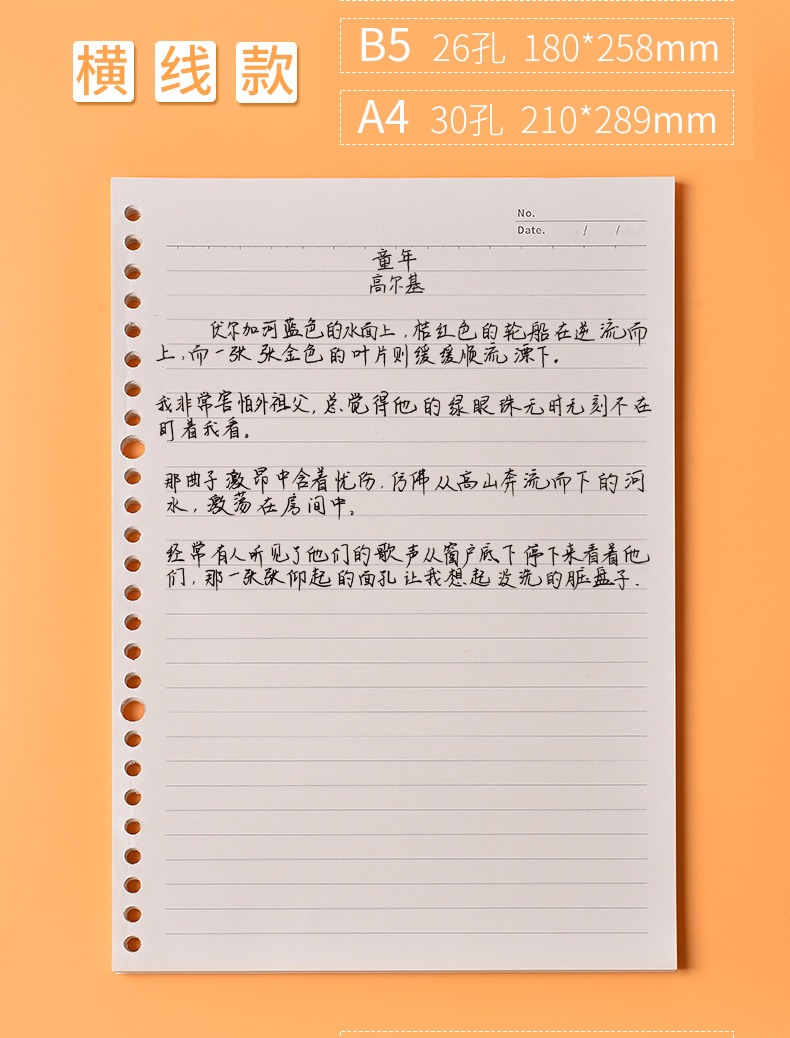 横线款
B5 26孔 180*258mm
A4 30孔 210*289mm
No.
Date. / /
童年
高尔基
伏尔加河蓝色的水面上,桔红色的轮船在逆流而
上,而一张张金色的叶片则缓缓顺流漂下。
我非常害怕外祖父,总觉得他的绿眼珠无时无刻不在
盯着我看。
那曲子激昂中含着忧伤,仿佛从高山奔流而下的河
水,激荡在房间中。
经常有人听见了他们的歌声从窗户底下停下来看着他
们,那一张张仰起的面孔让我想起没洗的脏盘子.